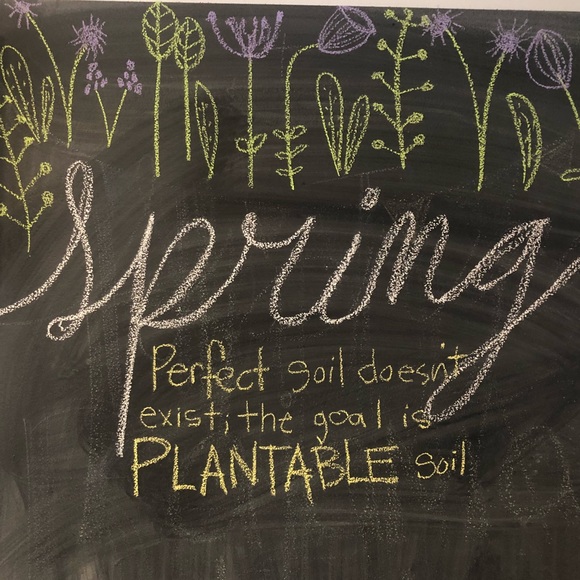 Spring
Perfect soil doesn't
exist; the goal is
PLANTABLE soil